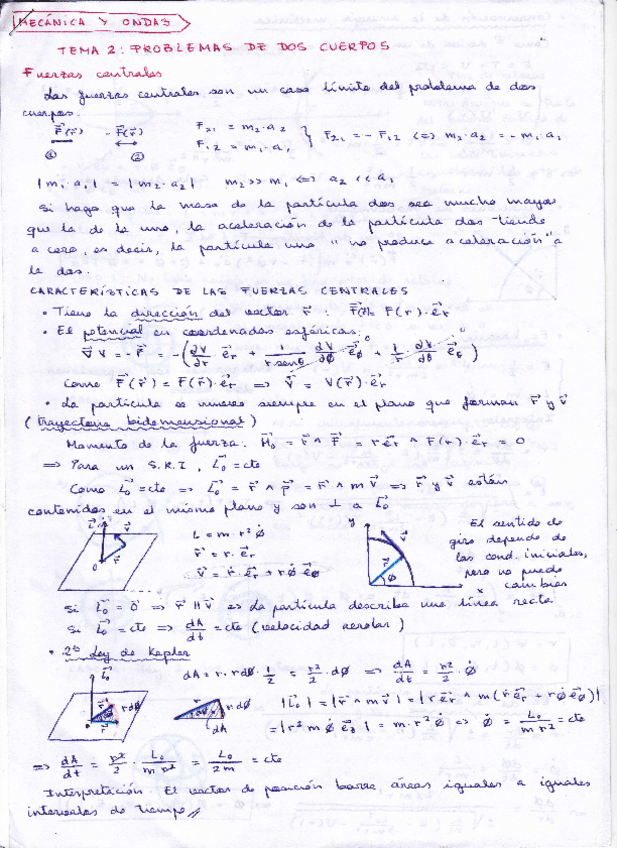 MECÁNICA Y ONDAS
TEMA 2: PROBLEMAS DE DOS CUERPOS
Fuerzas centrales
Las fuerzas centrales son un caso límite del problema de dos
cuerpos.
F⃗(r⃗) -F⃗(r⃗) F₂₁ = m₂·a₂ } F₂₁ = -F₁₂ <=> m₂·a₂ = -m₁·a₁
① ② F₁₂ = m₁·a₁
|m₁·a₁| = |m₂·a₂| m₂ >> m₁ <=> a₂ << a₁
Si hago que la masa de la partícula dos sea mucho mayor
que la de la uno, la aceleración de la partícula dos tiende
a cero, es decir, la partícula uno "no produce aceleración" a
la dos.
CARACTERÍSTICAS DE LAS FUERZAS CENTRALES
• Tiene la dirección del vector r⃗ : F⃗(r⃗) = F(r)·e⃗r
• El potencial en coordenadas esféricas:
∇⃗V = -F⃗ = -(dV/dr e⃗r + 1/(r senθ) dV/dØ e⃗Ø + 1/r dV/dθ e⃗θ)
Como F⃗(r⃗) = F(r⃗)·e⃗r => V⃗ = V(r⃗)·e⃗r
• La partícula se mueve siempre en el plano que forman r⃗ y v⃗
(trayectoria bidimensional)
Momento de la fuerza: M⃗₀ = r⃗ ∧ F⃗ = r e⃗r ∧ F(r)·e⃗r = 0
=> Para un S.R.I, L⃗₀ = cte
Como L⃗₀ = cte => L⃗₀ = r⃗ ∧ p⃗ = r⃗ ∧ m v⃗ => r⃗ y v⃗ están
contenidos en el mismo plano y son ⊥ a L⃗₀
L⃗₀ v⃗ r⃗ 0 L = m·r² Ø̇ y v⃗ r⃗ Ø x El sentido de
r⃗ = r·e⃗r giro depende de
v⃗ = ṙ·e⃗r + rØ̇ e⃗Ø las cond. iniciales,
pero no puede
cambiar
Si L⃗₀ = 0⃗ => r⃗ || v⃗ => La partícula describa una línea recta
Si L⃗₀ = cte => dA/dt = cte (velocidad aerolar)
• 2ª Ley de Kepler
dA = r·rdØ·1/2 = r²/2·dØ => dA/dt = r²/2·Ø̇
L⃗₀ 0 r⃗ rdØ r rdØ dA |L⃗₀| = |r⃗ ∧ m v⃗| = |r e⃗r ∧ m(ṙ e⃗r + rØ̇ e⃗Ø)|
= |r² m Ø̇ e⃗z| = m·r² Ø̇ => Ø̇ = L₀/(m r²) = cte
=> dA/dt = r²/2 · L₀/(m r²) = L₀/2m = cte
Interpretación: El vector de posición barre áreas iguales a iguales
intervalos de tiempo //